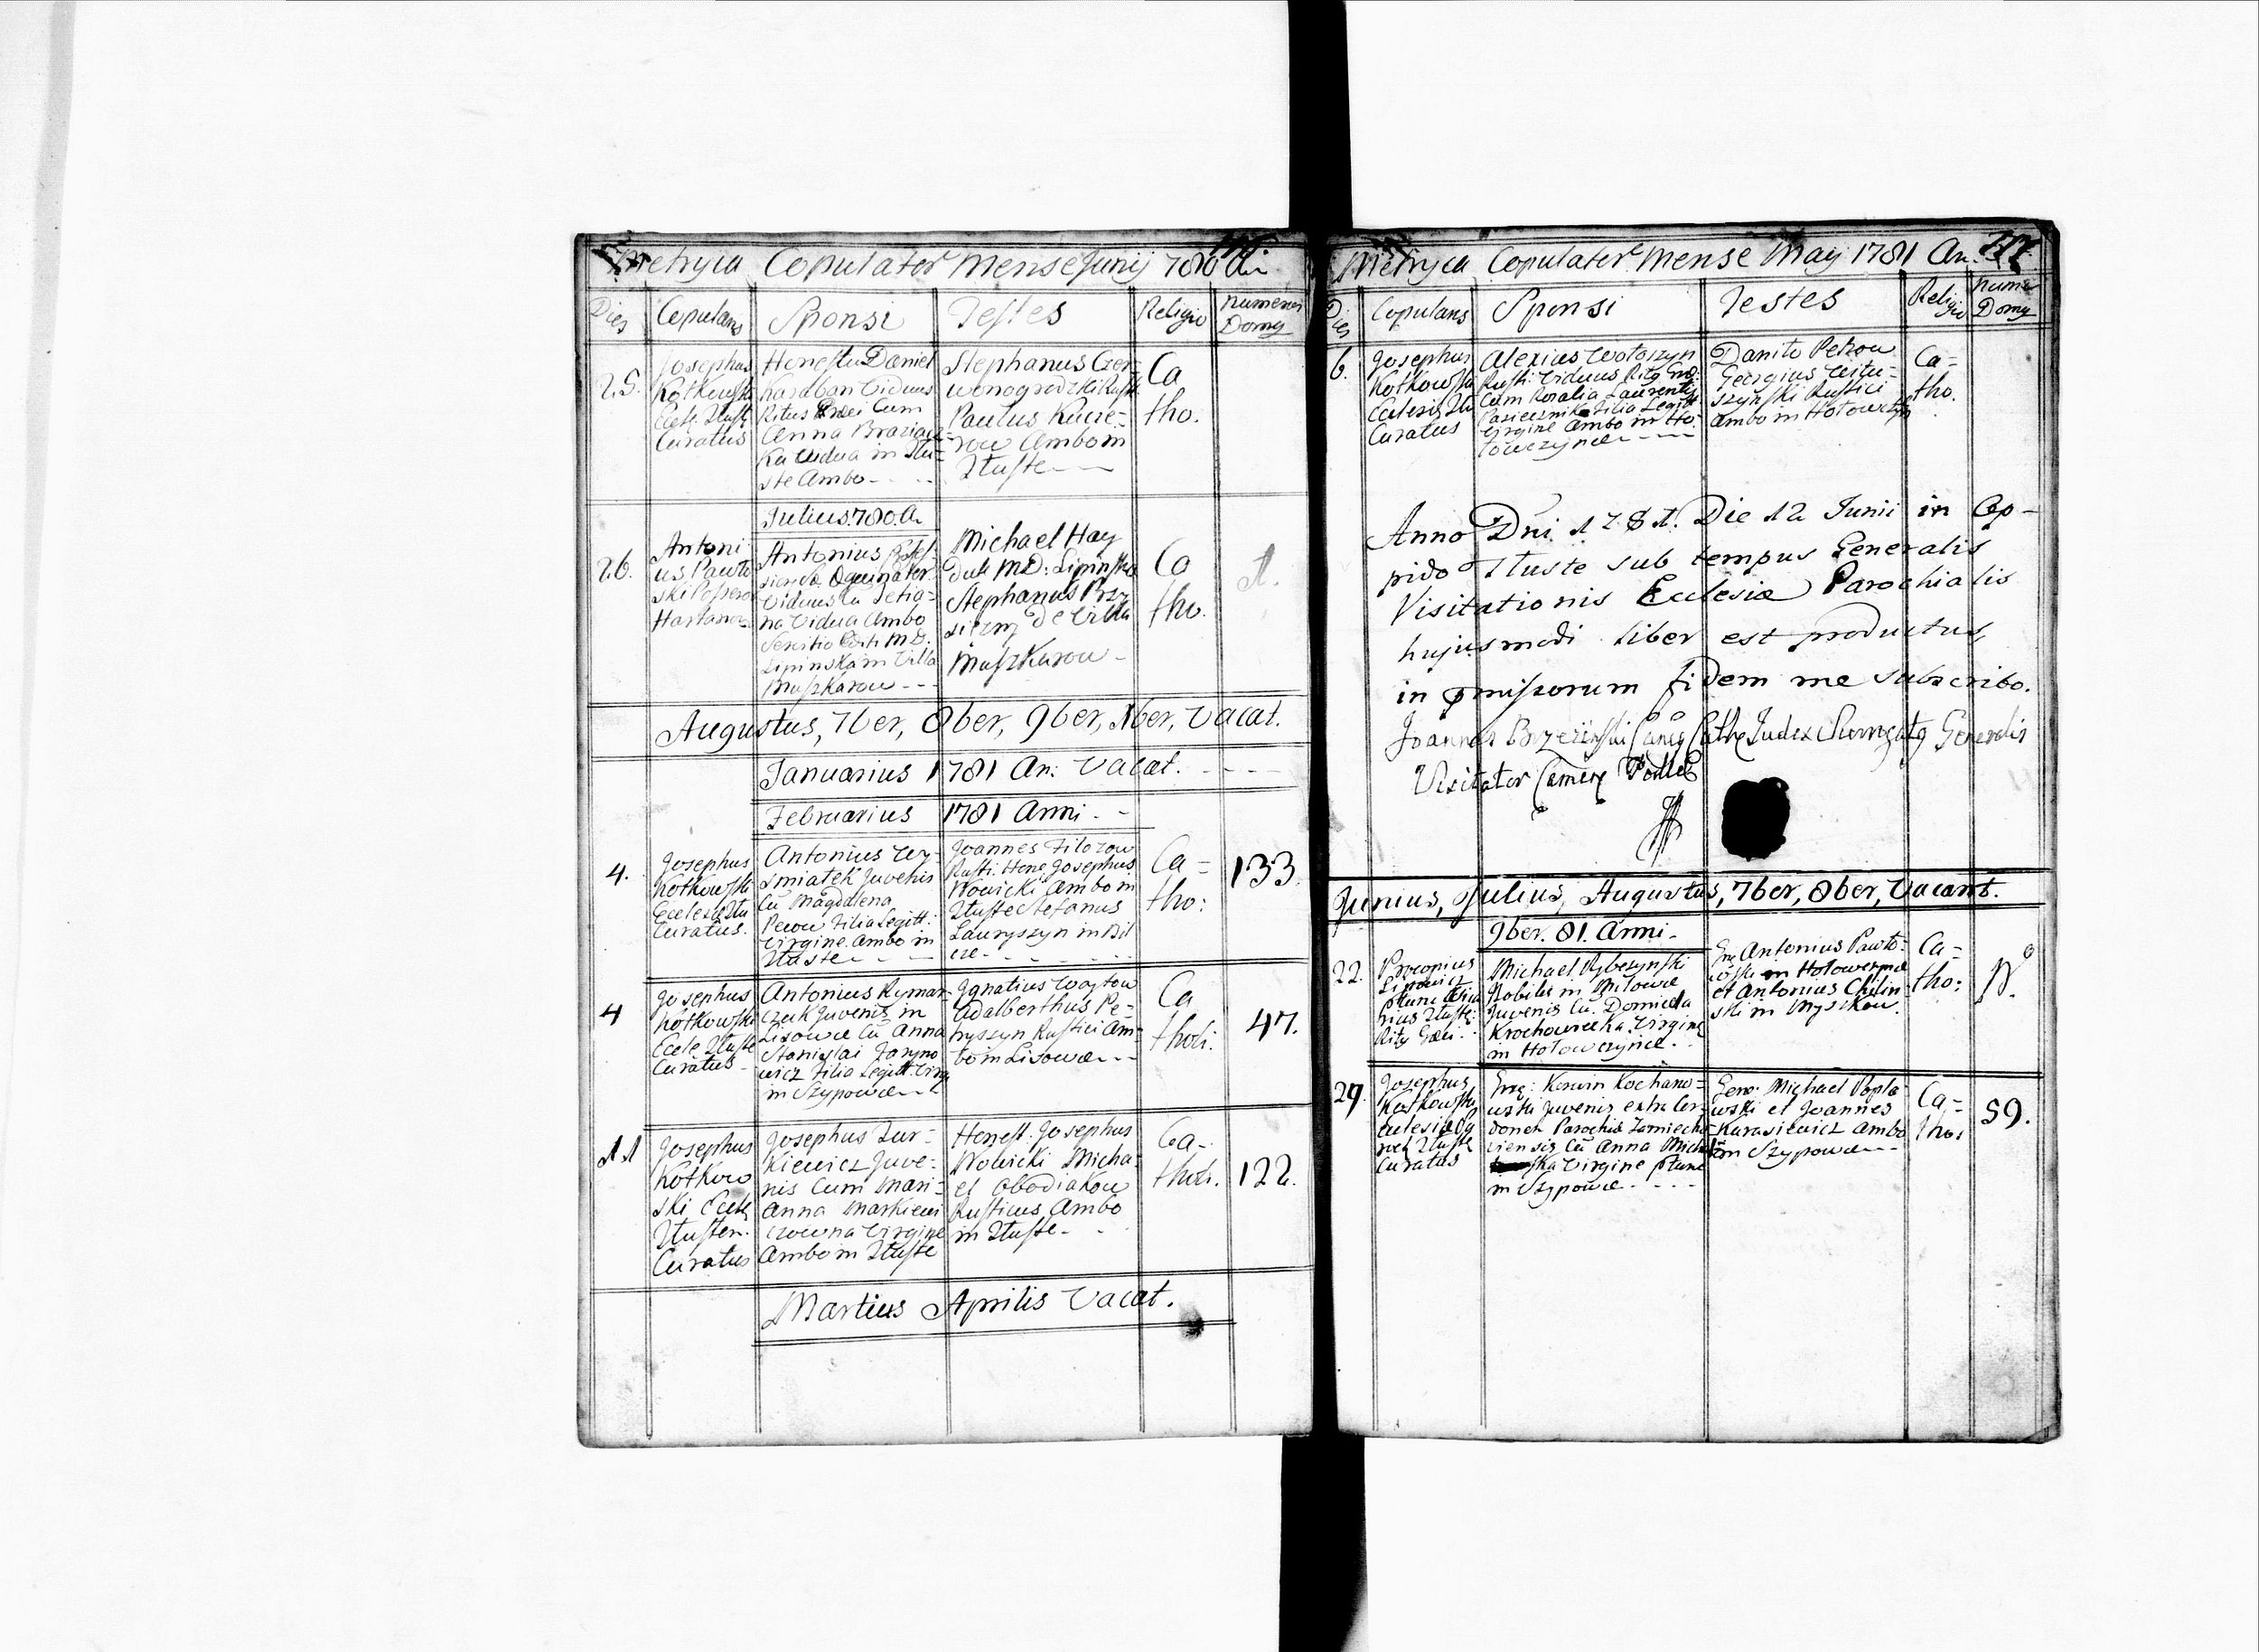 Metryca Copulator mense Junij 780 An.
Dies Copulans Sponsi Testes Religio numerus Domq
25.
Josephus
Kotkowski
Eccle. Ztust
Curatus
Honestu Daniel
Karaban Viduus
Ritus Graei Cum
Anna
Vidua in Ztu-
ste Ambo - -
Stephanus Czer-
wonogrodzki Rust
Paulus Kucie-
row Ambo in
Ztuste
Ca
tho.
Julius. 780. A.
26.
Antoni
us Pawto
ski
Antonius
Viduus Cu Tetia-
na Vidua Ambo
MD.
Lipinski in Villa
Muszkarow - - -
Michael Hay
duk MD: Lipinski
Stephanus
de Villa
Muszkarow -
Ca
tho.
1.
Augustus, 7ber, 8ber, 9ber, Xber, Vacat.
Januarius 1781 An: Vacat. - - - -
Februarius 1781 Anni - -
4.
Josephus
Kotkowski
Eccles Ztu
Curatus.
Antonius Wy-
smiatek Juvenis
Cu Magdalena
Pecow Filia Legitt:
Virgine. Ambo in
Ztuste - -
Joannes Filozow
Rusti. Hone Josephus
Nowicki Ambo in
Ztuste Stefanus
Lauryszyn in Bil
cze - - -
Ca =
tho:
133.
4
Josephus
Kotkowski
Eccle Ztuste
Curatus -
Antonius Rymar-
czuk Juvenis in
Lisowce Cu Anna
Stanislai Jaryno
wicz Filia Legitt. Virg
in Szypowce - -
Ignatius Woytow
Adalberthus Pe-
tryszyn Rustici Am-
bo in Lisowce - -
Ca
tholi.
47.
11
Josephus
Kotkow
ski Eccle
Ztusten.
Curatus
Josephus Zur-
kiewicz Juve-
nis Cum Mari-
anna Markiewi
czowna Virgine
Ambo in Ztuste
Honest. Josephus
Nowicki Micha-
el Obodiakow
Rusticus Ambo
in Ztuste - -
Ca-
tholi.
122.
Martius Aprilis Vacat.
Metryca Copulator mense May 1781 An.
Dies Copulans Sponsi Testes Religio Nume Domq
6.
Josephus
Kotkowski
Eccles. Ztu
Curatus
Alexius Wotoszyn
Rusti. Viduus Ritq
Cum Rosalia Laurentij
Pasiecznik Filia Legitt
Virgine Ambo in Ho-
towczynce - - -
Danito Petrow
Georgius Witu-
szynski Rustici
Ambo in Hotowczyn
Ca=
tho.
Anno Dni 1781. Die 12 Junii in Op-
pido Ztuste sub tempus Generalis
Visitationis Ecclesiæ Parochialis
hujusmodi liber est productus,
in pmissorum fidem me subscribo.
Joannes Brzezinski Canq Cathe Judex Surrogatq Generalis
Visitator Camere
Junius, Julius, Augustus, 7ber, 8ber, Vacant.
9ber. 81. Anni -
22.
Procopius
Lipowicz
Ritq Graei.
Michael Rybczynski
Nobilis in Mitowce
Juvenis Cu. Domicela
Krochowiecka Virgine
in Hotowczynce. -
Gnq Antonius Pawto-
wski in Hotowczynce
et Antonius Chilin
ski in Myszkow.
Ca=
tho:
29.
Josephus
Kotkowski
Curatus
Gnq: Korwin Kochano=
wski Juvenis extra Cor-
donem Parochia Zamiecho-
viensis Cu Anna
Virgine
in Szypowce - - -
Gene: Michael Popla
wski et Joannes
Karasiewicz Ambo
in Szypowce - -
Ca=
tho:
59.